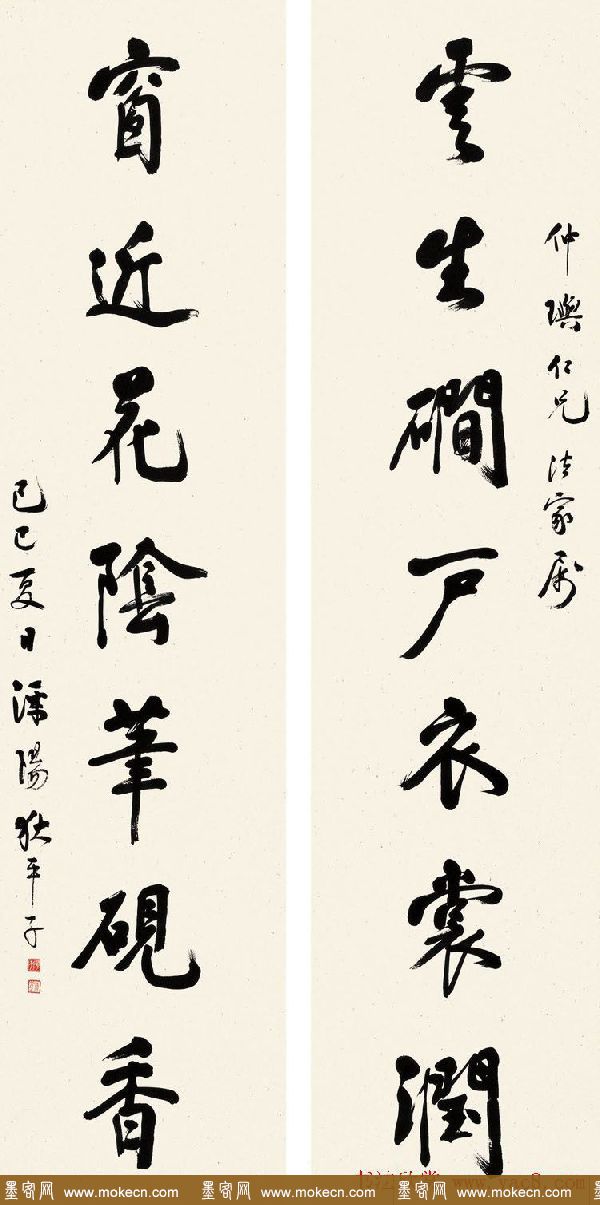 仲璵仁兄法家属
雲生磵戶衣裳潤
窗近花陰筆硯香
己巳夏日溧陽狄平子
www.yac8.com
墨客网 www.mokecn.com 墨客网 www.mokecn.com 墨客网 www.mokecn.com